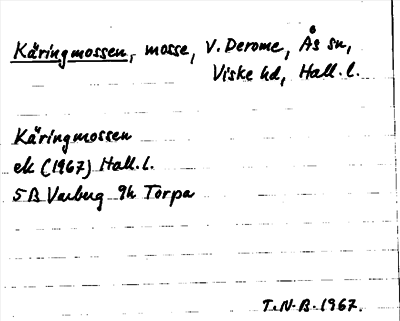 Käringmossen, mosse, V. Derome, Ås sn,
Viske hd, Hall. l.
Käringmossen
ek (1967) Hall. l.
5B Varberg 9h Torpa
T.N.B. 1967.